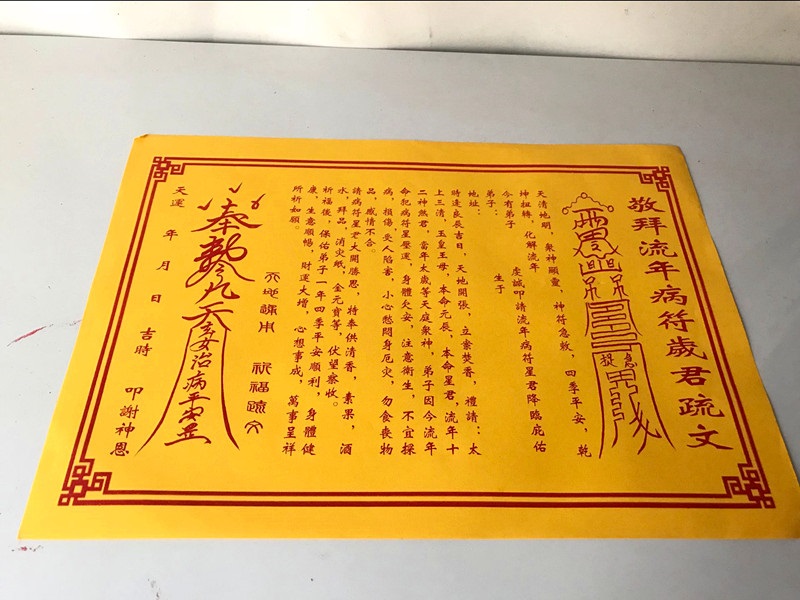 敬拜流年病符歲君疏文
天清地明，眾神顯靈，神符急救，四季平安，乾
坤扭轉，化解流年
今有弟子　虔誠叩請流年病符星君降臨庇佑
弟子：　生于
地址：
時逢良辰吉日，天地開張，立案焚香，禮請：太
上三清，玉皇王母，本命元辰，本命星君，流年十
二神煞君，當年太歲等天庭眾神，弟子因今流年
命犯病符星壓運，身體欠安，注意衛生，不宜探
病，損傷，受人陷害，小心愁悶身厄災，勿食喪物
品，感情不合。
請病符星君大開勝恩，特奉供清香，素果，酒
水，拜品，消災紙，金元寶等，伏望察收。
祈福後，保佑弟子一年四季平安順利，身體健
康，生意順暢，財運大增，心想事成，萬事呈祥
所祈如願。
祈福疏文
奉
九天
治病平安
天運　年　月　日　吉時　叩謝神恩